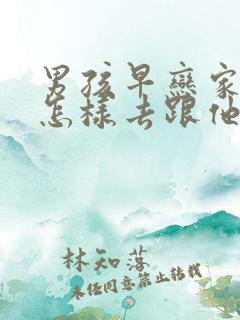 男孩早恋家
怎样去跟他
林知落
未经同意禁止转载